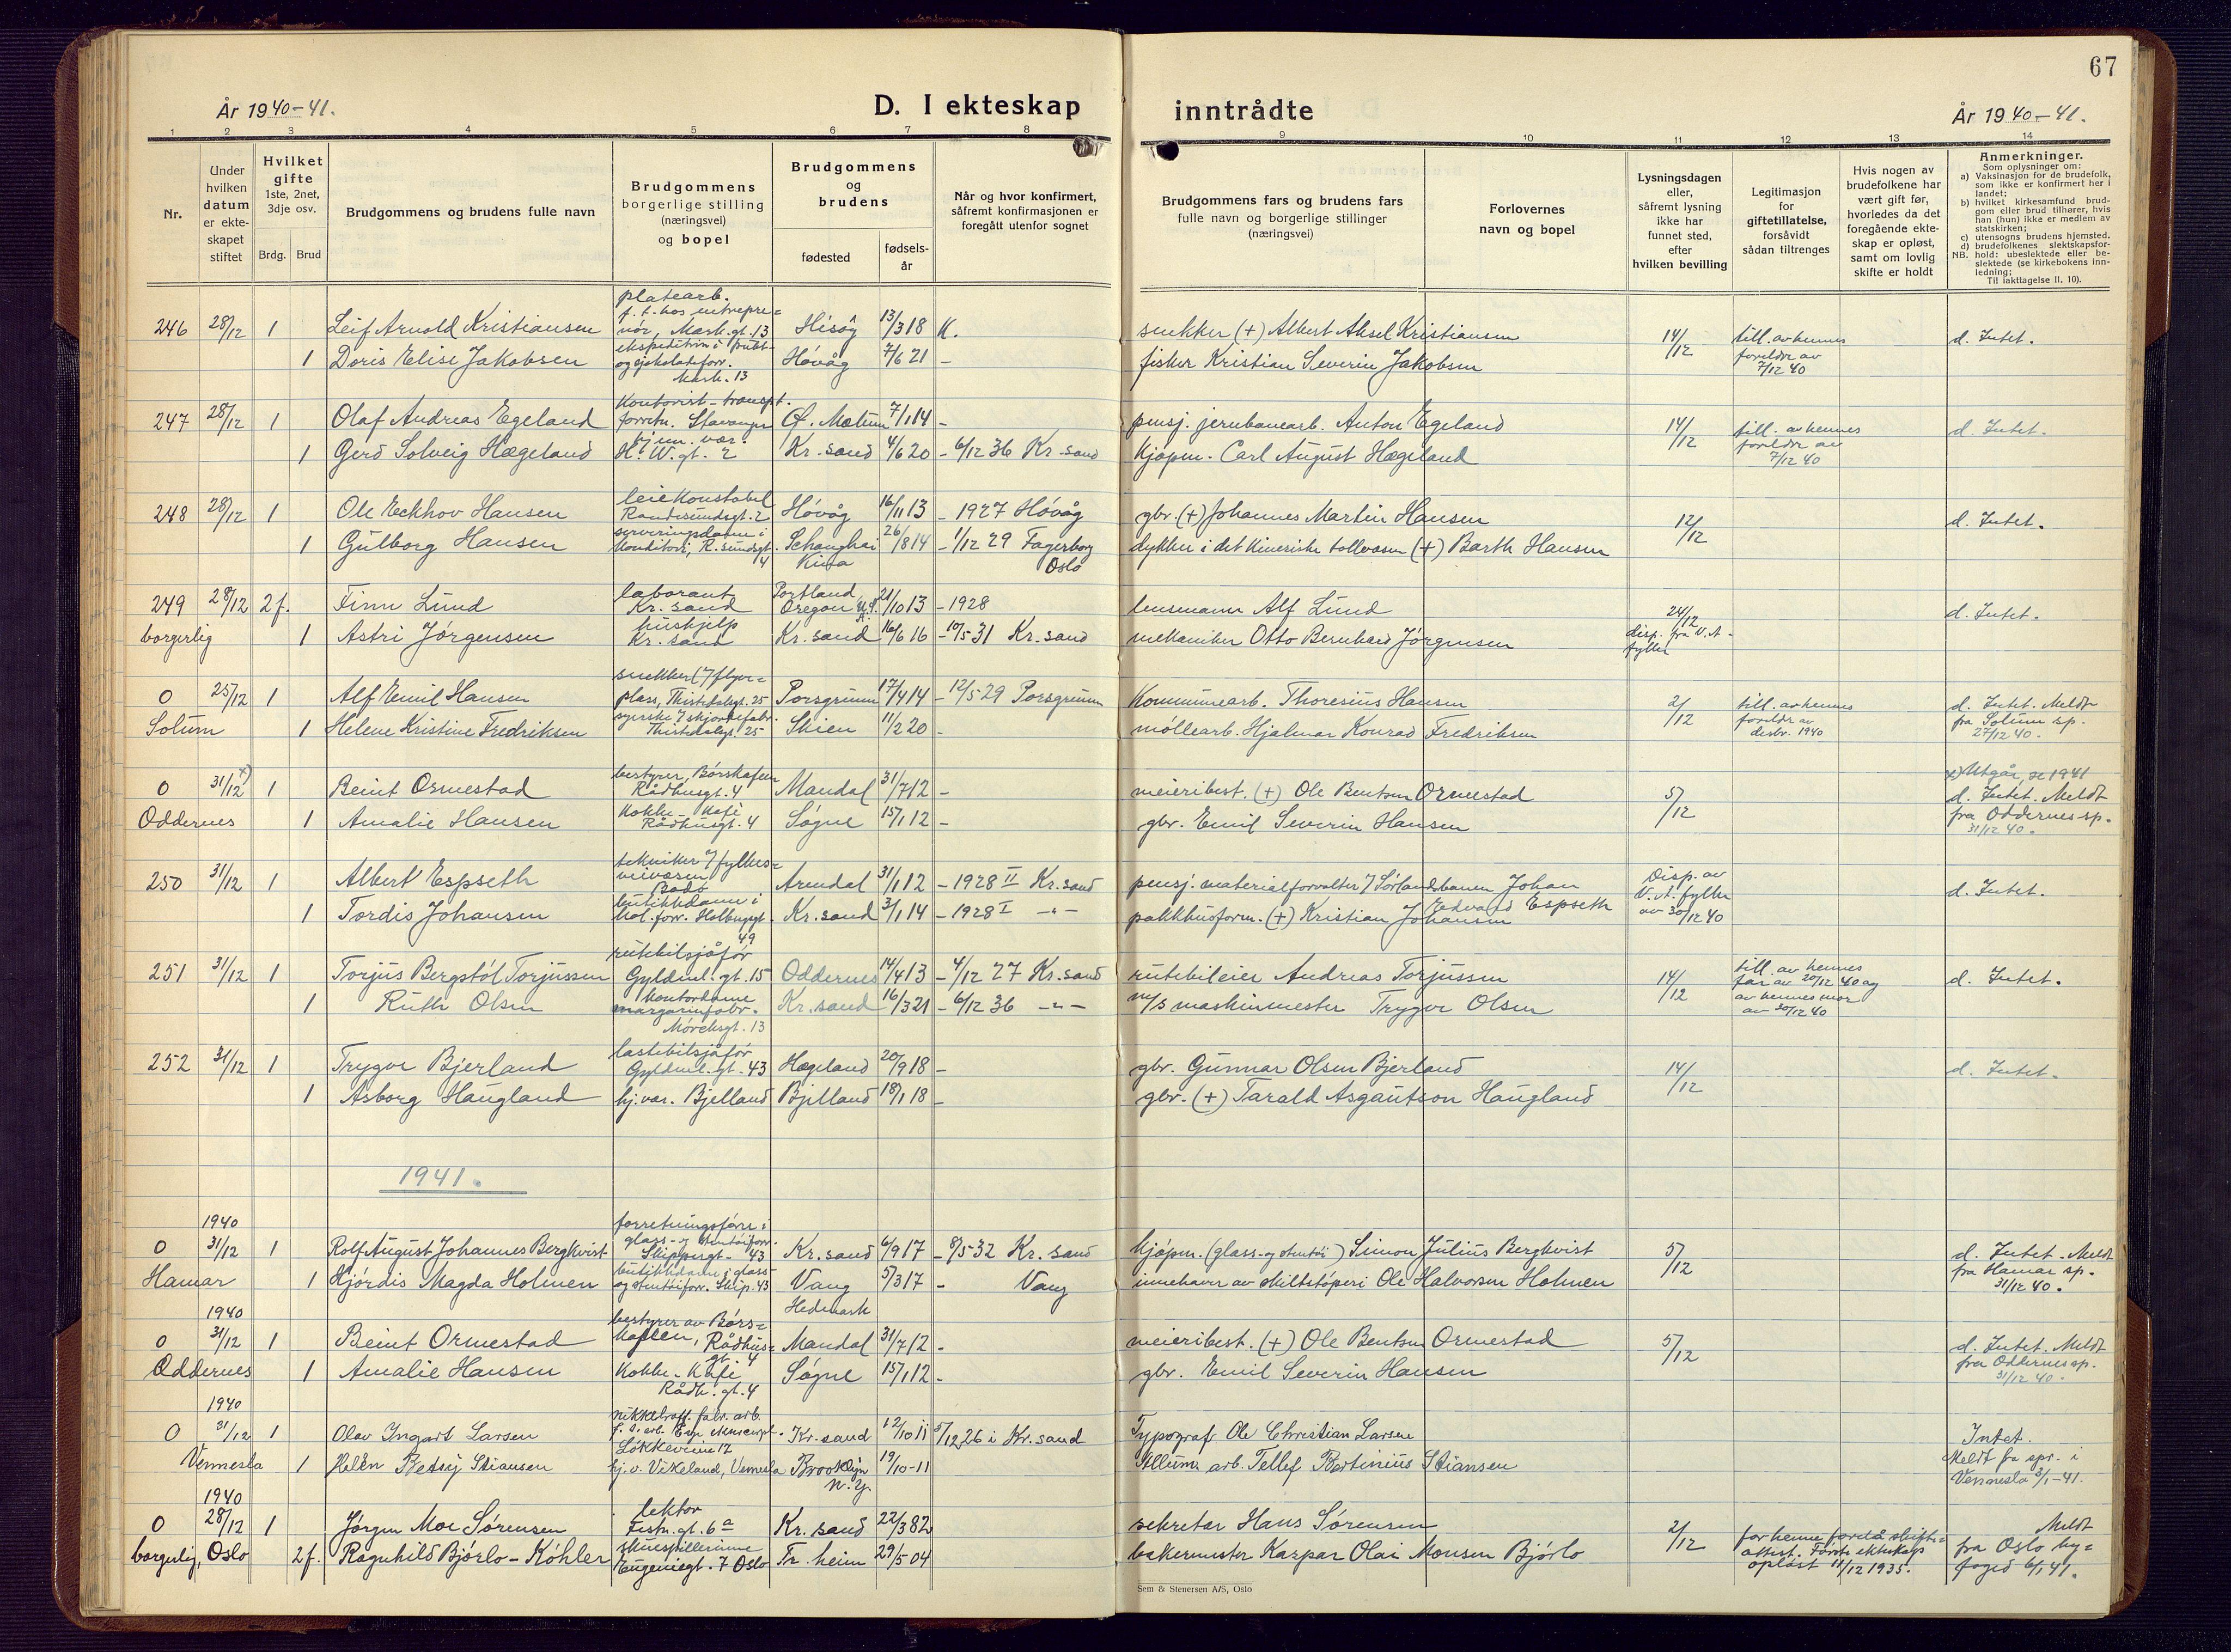 67
År 1940-41.
D. I ekteskap inntrådte
År 1940-41.
1 2 3 4 5 6 7 8 9 10 11 12 13 14
Nr.
Under hvilken datum er ekte-skapet stiftet
Hvilket gifte 1ste, 2net, 3dje osv.
Brdg. Brud
Brudgommens og brudens fulle navn
Brudgommens borgerlige stilling (næringsvei) og bopel
Brudgommens og brudens
fødested
fødsels-år
Når og hvor konfirmert, såfremt konfirmasjonen er foregått utenfor sognet
Brudgommens fars og brudens fars fulle navn og borgerlige stillinger (næringsvei)
Forlovernes navn og bopel
Lysningsdagen eller, såfremt lysning ikke har funnet sted, efter hvilken bevilling
Legitimasjon for giftetillatelse, forsåvidt sådan tiltrenges
Hvis nogen av brudefolkene har vært gift før, hvorledes da det foregående ekte-skap er opløst, samt om lovlig skifte er holdt
Anmerkninger.
Som oplysninger om:
a) Vaksinasjon for de brudefolk, som ikke er konfirmert her i landet;
b) hvilket kirkesamfund brud-gom eller brud tilhører, hvis han (hun) ikke er medlem av statskirken;
c) utensogns brudens hjemsted.
d) brudefolkenes slektskapsfor-hold: ubeslektede eller be-slektede (se kirkebokens inn-ledning;
NB. Til iakttagelse II. 10).
246 28/12 1 Leif Arnold Kristiansen platearb. f. t. hos entrepre=nör, Mark.gt. 13 Hisöy 13/3 18 K. snekker (+) Albert Aksel Kristiansen 14/12 till. av hennes foreldre av 7/12 40 d. Intet.
1 Doris Elise Jakobsen ekspeditrise i frukt- og sjokoladeforr. Mark. 13 Hövåg 7/6 21 - fisker Kristian Severin Jakobsen
247 28/12 1 Olaf Andreas Egeland Kontorist - transpt. forretn. Stavanger 7/1 14 - pensj. jernbanearb. Anton Egeland 14/12 till. av hennes foreldre av 7/12 40 d. Intet.
1 Gerd Solveig Hægeland hjem. vær. H. W. gt. 2 Kr.sand 4/6 20 - 6/12 36 Kr.sand Kjöpm. Carl August Hægeland
248 28/12 1 Ole Eckhov Hansen Randesundsgt. 2 Hövåg 16/11 13 - 1927 Hövåg gbr. (+) Johannes Martin Hansen 12/12 d. Intet.
1 Gulborg Hansen serveringsdame i konditori, R.sundsgt. 4 Schanghai Kina 26/8 14 - 1/12 29 Fagerborg Oslo dykker i det kinesiske tollvesen (+) Barth Hansen
249 28/12 2f. Finn Lund laborant Kr.sand Portland Oregon U.S.A. 21/10 13 - 1928 lensmann Alf Lund 24/12 disp. fra V.A- fylke d. Intet.
borgerlig 1 Astri Jörgensen hushjelp Kr.sand Kr.sand 16/6 16 - 10/5 31 Kr.sand mekaniker Otto Bernhard Jörgensen
0 25/12 1 Alf Emil Hansen snekker / flyve=plass, Thistedalsgt. 25 Porsgrunn 17/4 14 - 12/5 29 Porsgrunn Kommunearb. Thoresius Hansen 2/12 till. av hennes foreldre av desbr. 1940 d. Intet. Meldt fra Solum sp. 27/12 40.
Solum 1 Helene Kristine Fredriksen syerske / skjortefabr. Thistedalsgt. 25 Skien 11/2 20 - möllearb. Hjalmar Konrad Fredriksen
0 31/12 x) 1 Beint Ormestad bestyrer, Börskafeen Rådhusgt. 4 Mandal 31/7 12 - meieribest. (+) Ole Bentsen Ormestad 5/12 x) Utgår, se 1941 d. Intet. Meldt fra Oddernes sp. 31/12 40.
Oddernes 1 Amalie Hansen Kokke - Kafé Rådhusgt. 4 Sögne 15/1 12 - gbr. Emil Severin Hansen
250 31/12 1 Albert Espseth tekniker / fylkes=veivesen Bodö Arendal 31/1 12 - 1928 II Kr.sand pensj. materialforvalter / Sörlandsbanen Johan Edvard Espseth Disp. av V.A. fylke av 30/12 40 d. Intet.
1 Tordis Johansen butikkdame i kol.forr. Holbergsgt. 49 Kr.sand 3/1 14 - 1928 I -"- pakkhusform. (+) Kristian Johansen
251 31/12 1 Torjus Bergstöl Torjussen rutebilsjåför Gyldenl.gt. 15 Oddernes 14/4 13 - 4/12 27 Kr.sand rutebileier Andreas Torjussen 14/12 till. av hennes far av 20/12 40 og av hennes mor av 30/12 40 d. Intet.
1 Ruth Olsen kontordame margarinfabr. Mörchsgt. 13 Kr.sand 16/3 21 - 6/12 36 -"- m/s maskinmester Trygve Olsen
252 31/12 1 Trygve Bjerland lastebilsjåför Gyldenl.gt. 43 Hægeland 20/9 18 - gbr. Gunnar Olsen Bjerland 14/12 d. Intet.
1 Asborg Haugland hj.vær. Bjelland Bjelland 18/1 18 - gbr. (+) Tarald Asgautson Haugland
1941.
1940
0 31/12 1 Rolf August Johannes Bergkvist forretningsförer i glass- og stentöiforr. Skippergt. 43 Kr.sand 6/9 17 - 8/5 32 Kr.sand kjöpm. (glass- og stentöi) Simon Julius Bergkvist 5/12 d. Intet - Meldt fra Hamar sp. 31/12 40.
Hamar 1 Hjördis Magda Holmen butikkdame i glass- og stentöiforr. Skip. 43 Vang Hedmark 5/3 17 - Vang innehaver av skiltstöperi Ole Halvorsen Holmen
1940
0 31/12 1 Beint Ormestad bestyrer av Börs=kafeen, Rådhus=gt. 4 Mandal 31/7 12 - meieribest. (+) Ole Bentsen Ormestad 5/12 d. Intet. Meldt fra Oddernes sp. 31/12 40.
Oddernes 1 Amalie Hansen Kokke - Kafé Rådh.gt. 4 Sögne 15/1 12 - gbr. Emil Severin Hansen
1940
0 31/12 1 Olav Ingvart Larsen nikkelraff. fabr. arb. Lökkeveien 17 Kr.sand 12/10 11 5/12 26 i Kr.sand Typograf Ole Christian Larsen Intet. Meldt fra spr. i Vennesla 2/1-41.
Vennesla 1 Helen Betsy Stiansen hj.v. Vikeland, Vennesla Brooklyn N.Y. 19/10-11 Allum. arb. Tellef Bertinius Stiansen
1940
0 28/12 1 Jörgen Moe Sörensen lektor Festn.gt. 6a Kr.sand 22/3 82 sekretær Hans Sörensen 2/12 for henne foreld. skifte=attest. Förste ekteskap oplöst 11/12 1935. Meldt fra Oslo by=foged 6/1 41.
borgerlig, Oslo 2f. Ragnhild Björlo-Köhler skuespillerinne Eugeniegt. 7 Oslo Tr.heim 29/5 04 bakermester Kaspar Olai Monsen Björlo
Sem & Stenersen A/S, Oslo